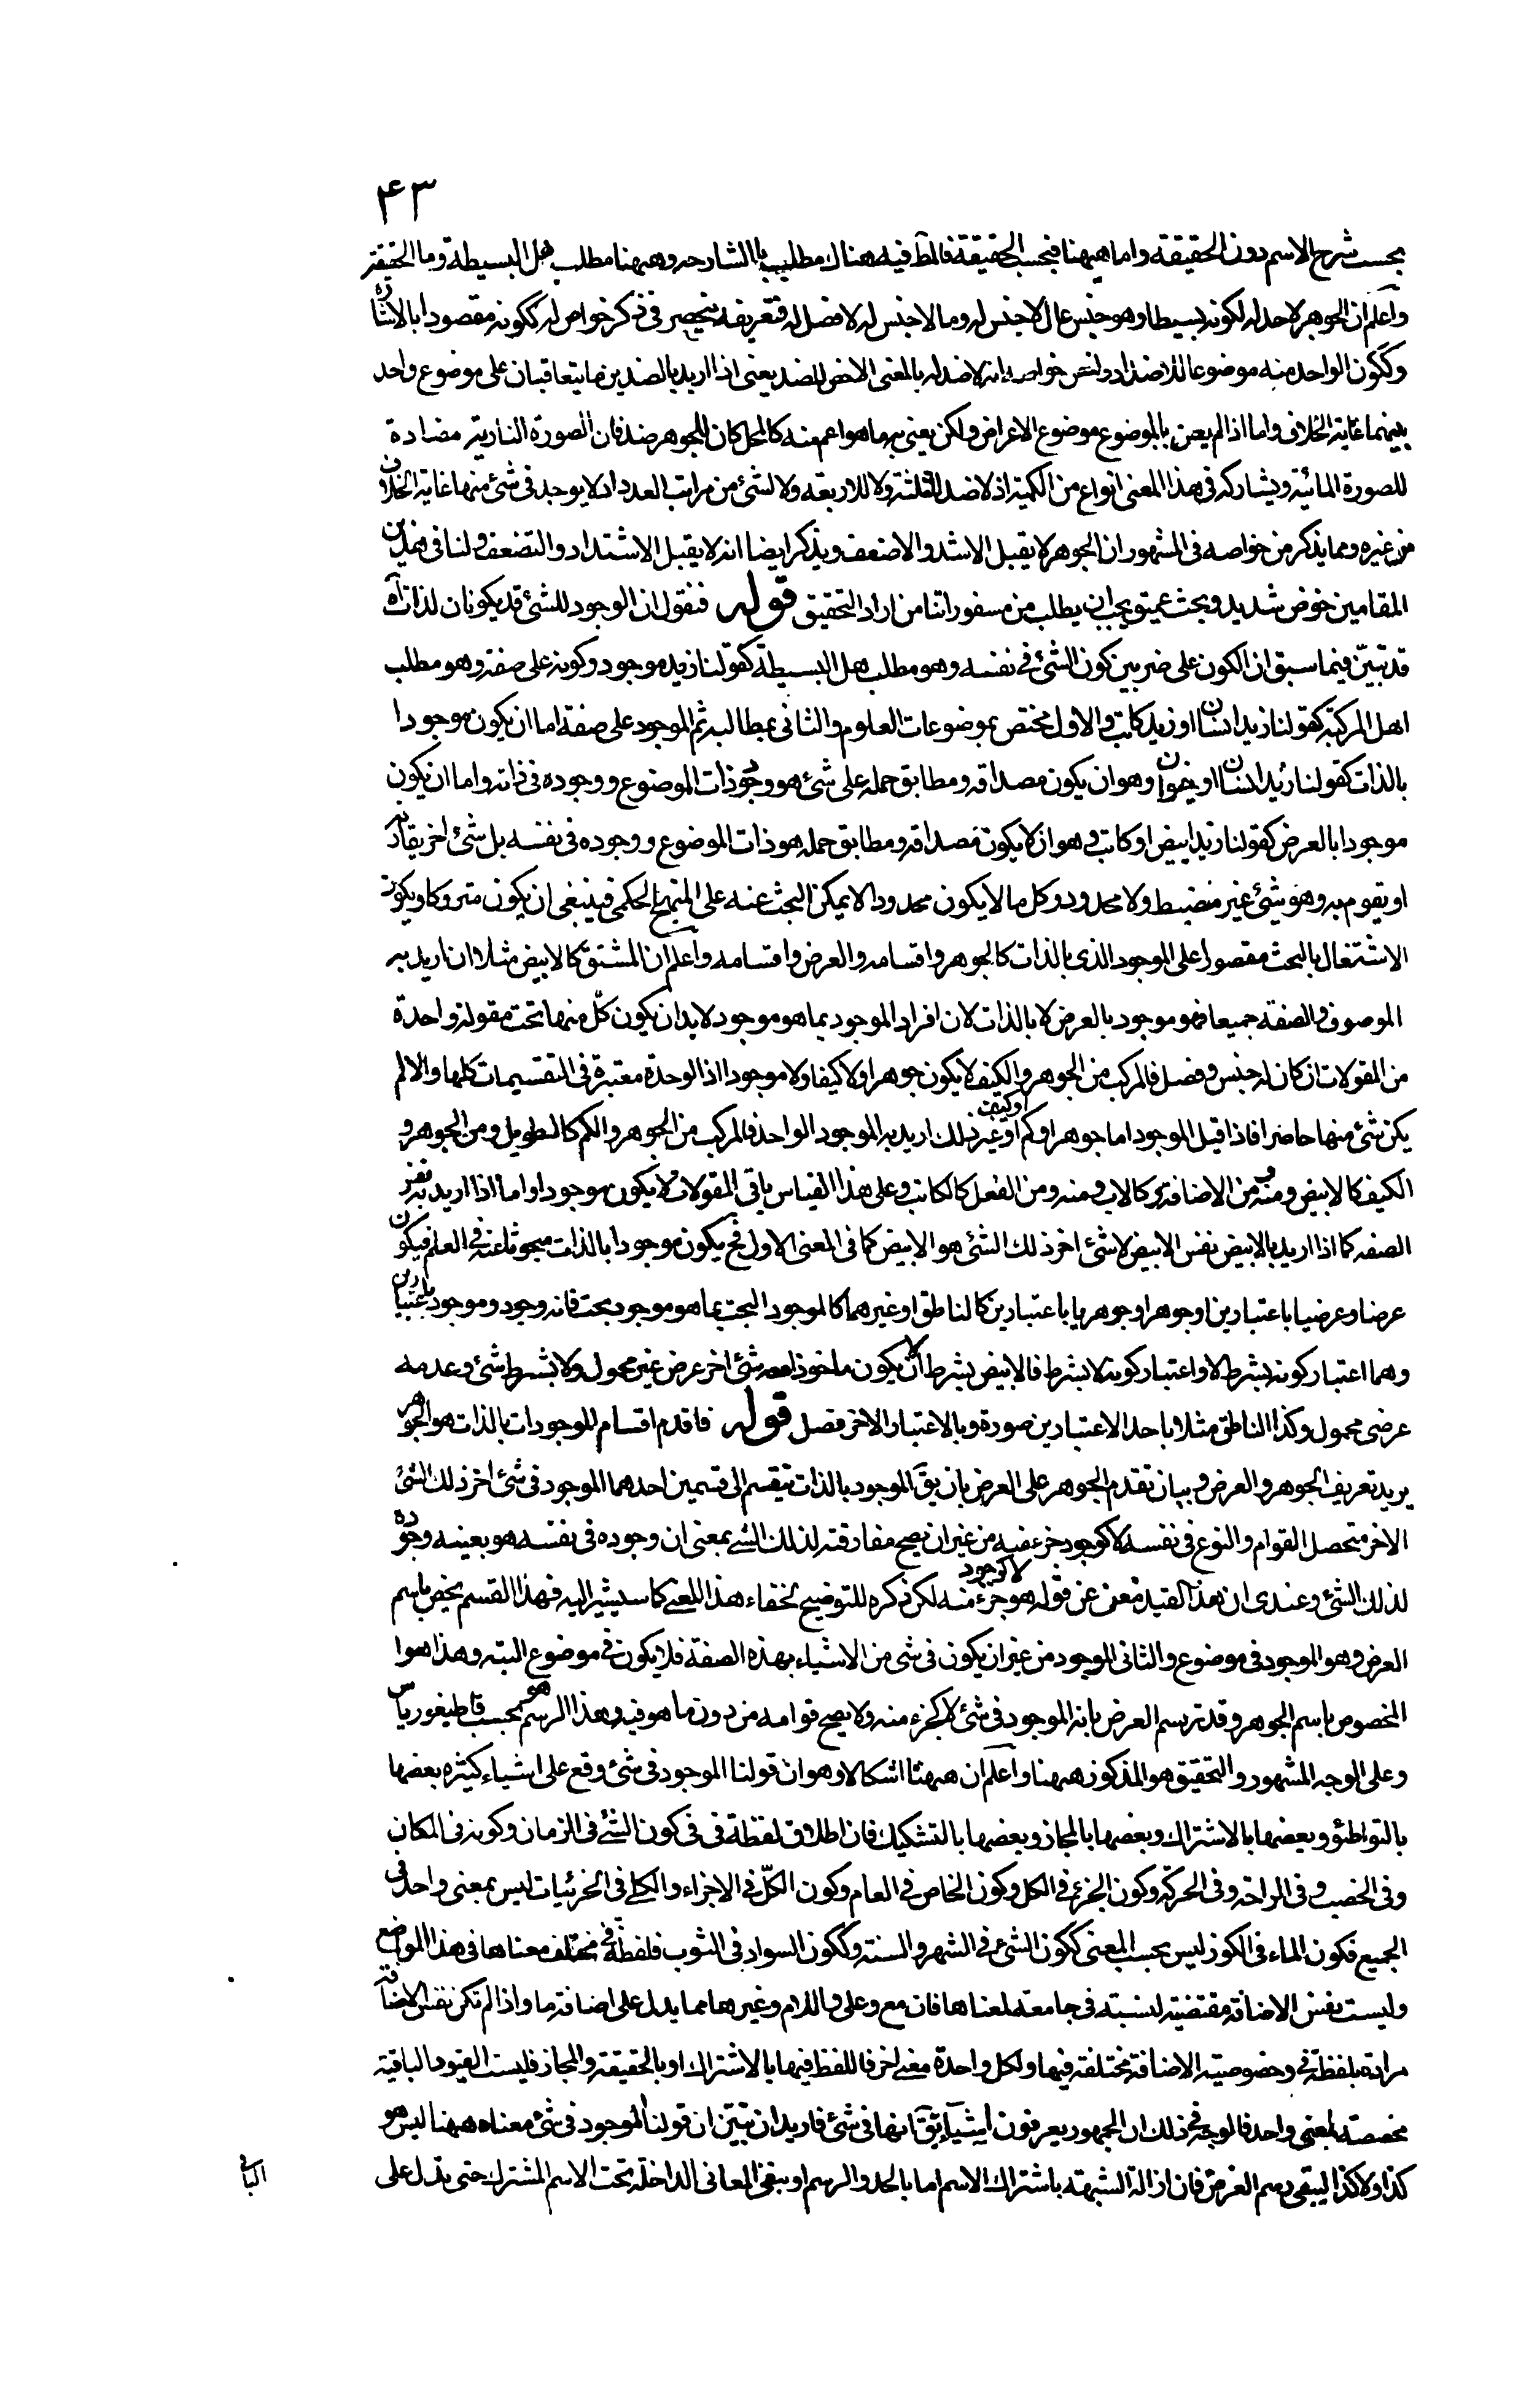 ۴۳
بحسب شرح الاسم دون الحقيقة واما ههنا فبحسب الحقيقة فالمط فيه هناك مطلب ما الشارحه وههنا مطلب هل البسيطة وما الحقيقة
واعلم ان الجوهر لا حد له لكونه بسيطا وهو جنس عال لا جنس له وما لا جنس له لا فصل له فتعريفه ينحصر فى ذكر خواص له ككونه مقصودا بالاشارة
وككون الواحد منه موضوعا للاضداد ولنقص خواصه انه لا ضد له بالمعنى الاخص للضد يعنى اذا اريد بالضدين ما يتعاقبان على موضوع واحد
بينهما غاية الخلاف واما اذا لم يعن بالموضوع موضوع الاعراض ولكن يعنى به ما هو اعم منه كالمحل كان للجوهر ضد فان الصورة النارية مضادة
للصورة المائية ويشاركه فى هذا المعنى انواع من الكمية اذ لا ضد للثلثة ولا للاربعة ولا لشئ من مراتب العدد اذ لا يوجد فى شئ منها غاية الخلاف
من غيره ومما يذكر من خواصه فى المشهور ان الجوهر لا يقبل الاشد والاضعف ويذكر ايضا انه لا يقبل الاشتداد والتضعف ولنا فى هذين
المقامين خوض شديد وبحث عميق يجب ان يطلب من مسفوراتنا من اراد التحقيق قوله فنقول ان الوجود للشئ قد يكون بالذات آه
قد تبيّن فيما سبق ان الكون على ضربين كون الشئ فى نفسه وهو مطلب هل البسيطة كقولنا زيد موجود وكونه على صفة وهو مطلب
اهل المركبة كقولنا زيد انسان او زيد كاتب والاول مختص بموضوعات العلوم والثانى بمطالبه ثم الموجود على صفة اما ان يكون موجودا
بالذات كقولنا زيد انسان او حيوان وهو ان يكون مصداقه ومطابق حمله على شئ هو وجود ذات الموضوع ووجوده فى ذاته واما ان يكون
موجودا بالعرض كقولنا زيد ابيض او كاتب وهو ان لا يكون مصداقه ومطابق حمله هو ذات الموضوع ووجوده فى نفسه بل شئ اخر يقارنه
او يقوم به وهو شئ غير منضبط ولا محدود وكل ما لا يكون محدودا لا يمكن البحث عنه على المنهج الحكمى فينبغى ان يكون متروكا ويكون
الاشتغال بالبحث مقصورا على الموجود الذى بالذات كالجوهر واقسامه والعرض واقسامه واعلم ان المشتق كالابيض مثلا ان اريد به
الموصوف والصفة جميعا فهو موجود بالعرض لا بالذات لان افراد الموجود بما هو موجود لا بد ان يكون كلّ منها تحت مقولة واحدة
من المقولات ان كان له جنس وفصل فالمركب من الجوهر والكيف لا يكون جوهرا ولا كيفا ولا موجودا اذ الوحدة معتبرة فى التقسيمات كلها والا لم
يكن شئ منها حاضرا فاذا قيل الموجود اما جوهر او كم او كيف او غير ذلك اريد به الموجود الواحد فالمركب من الجوهر والكم كالطويل ومن الجوهر و
الكيف كالابيض ومنه ومن الاضافة كالاب ومنه ومن الفعل كالكاتب وعلى هذا القياس باقى المقولات لا يكون موجودا واما اذا اريد به نفس
الصفه كما اذا اريد بالابيض نفس الابيض لا شئ اخر ذلك الشئ هو الابيض كما فى المعنى الاول فح يكون موجودا بالذات مبحوثا عنه فى العلم فيكون
عرضا وعرضيا باعتبارين او جوهرا وجوهريا باعتبارين كالناطق او غيرهما كالموجود البحت بما هو موجود بحت فانه وجود وموجود باعتبارين
وهما اعتبار كونه بشرط لا واعتبار كونه لا بشرط فالابيض بشرط ان لا يكون ماخوذا معه شئ اخر عرض غير محمول ولا بشرط شئ وعدمه
عرضى محمول وكذا الناطق مثلا باحد الاعتبارين صورة وبالاعتبار الاخر فصل قوله فاقدم اقسام الموجودات بالذات هو الجوهر
يريد تعريف الجوهر والعرض وبيان تقدم الجوهر على العرض بان يق الموجود بالذات ينقسم الى قسمين احدهما الموجود فى شئ اخر ذلك الشئ
الاخر متحصل القوام والنوع فى نفسه لا كوجود جزء فيه من غير ان يصح مفارقته لذلك الشئ بمعنى ان وجوده فى نفسه هو بعينه وجوده
لذلك الشئ وعندى ان هذا القيد مغن عن قوله لا كوجود هو جزء منه لكن ذكره للتوضيح لخفاء هذا المعنى كما سيشير اليه فهذا القسم يخص باسم
العرض وهو الموجود فى موضوع والثانى الموجود من غير ان يكون فى شئ من الاشياء بهذه الصفة فلا يكون فى موضوع البته وهذا هو ا
المخصوص باسم الجوهر وقد ترسم العرض بانه الموجود فى شئ لا كجزء منه ولا يصح قوامه من دون ما هو فيه وهذا الرسم هو بحسب قاطيغورياس
وعلى الوجه المشهور والتحقيق هو المذكور ههنا واعلم ان ههنا اشكالا وهو ان قولنا الموجود فى شئ وقع على اشياء كثيره بعضها
بالتواطئ وبعضها بالاشتراك وبعضها بالمجاز وبعضها بالتشكيك فان اطلاق لفظة فى فى كون الشئ فى الزمان وكونه فى المكان
وفى الخصب وفى الراحة وفى الحركة وكون الجزء فى الكل وكون الخاص فى العام وكون الكلّ فى الاجزاء والكلى فى الجزئيات ليس بمعنى واحد فى
الجميع فكون الماء فى الكوز ليس بحسب المعنى ككون الشئ فى الشهر والسنة وككون السواد فى الثوب فلفظة فى مختلف معناها فى هذا المواضع
وليست نفس الاضافة مقتضية لنسبته فى جامعة لمعناها فان مع وعلى واللام وغيرها مما يدل على اضافة ما واذا لم تكن نفس الاضافة
مرادة بلفظة فى وخصوصية الاضافة مختلفة فيها ولكل واحدة معنى اخر فاللفظ فيها بالاشتراك او بالحقيقة والمجاز فليست القيود الباقية
مخصصة لمعنى واحد فالوجه فى ذلك ان الجمهور يعرفون اشياء يق انها فى شئ فاريد ان تبيّن ان قولنا الموجود فى شئ معناه ههنا ليس هو
كذا ولا كذا ليبقى رسم العرض فان ازالة الشبهة باشتراك الاسم اما بالحد والرسم او بنفى المعانى الداخلة تحت الاسم المشترك حتى يدل على
الباقى